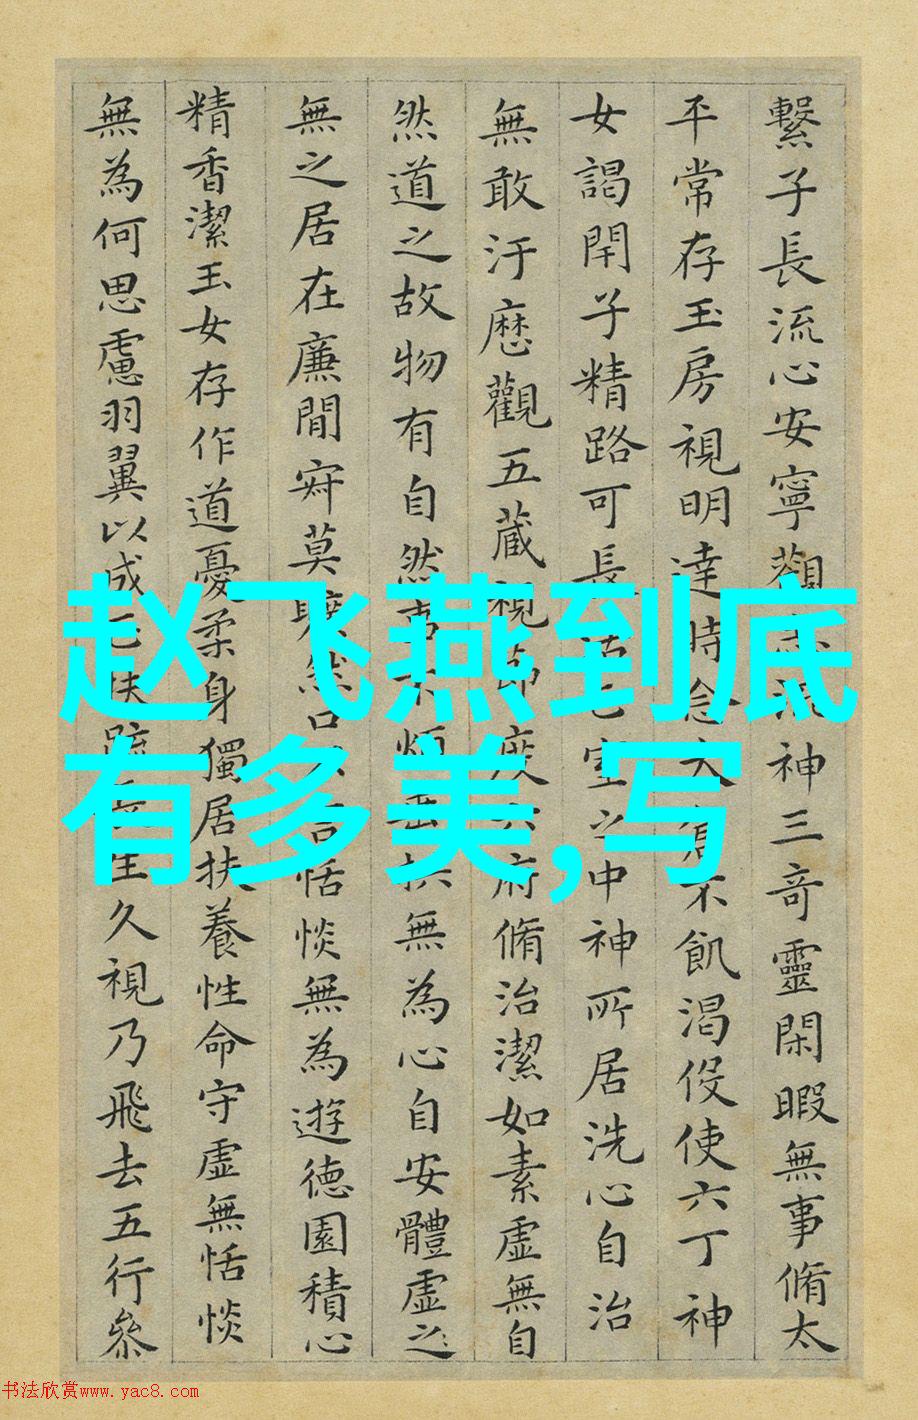 繫子長流心安寧觀流神三奇靈閑暇無事脩太
平常存玉房視明達時念大倉不飢渴伇使六丁神
女謁閇子精路可長活室之中神所居洗心自治
無敢汙歷觀五藏視節度六府脩治潔如素虛無自
然道之故物有自然事不煩垂拱無為心自安體虛之
無之居在廉閒寂莫曠然口言恬惔無為遊德園積心
精香潔玉女存作道憂柔身獨居扶養性命守虛無恬惔
無為何思慮羽翼以成正扶疏生久視乃飛去五行參
赵飞燕到底
有多美,写
书法欣赏www.yac8.com